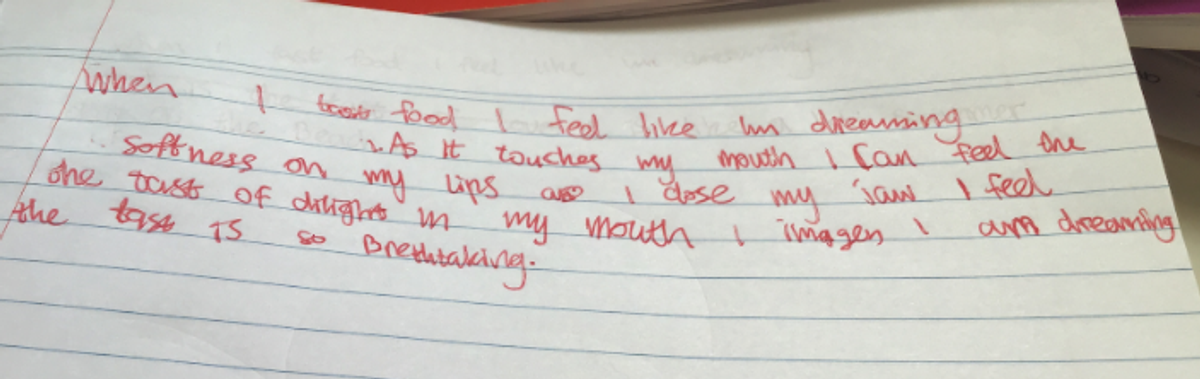 When I tast food I feel like Im dreaming
. As it touches my mouth I Can feel the
Softness on my Lips as I close my jaw I feel
the tast of dilight in my mouth I imagen I am dreaming
the tast is so Brethtaking.